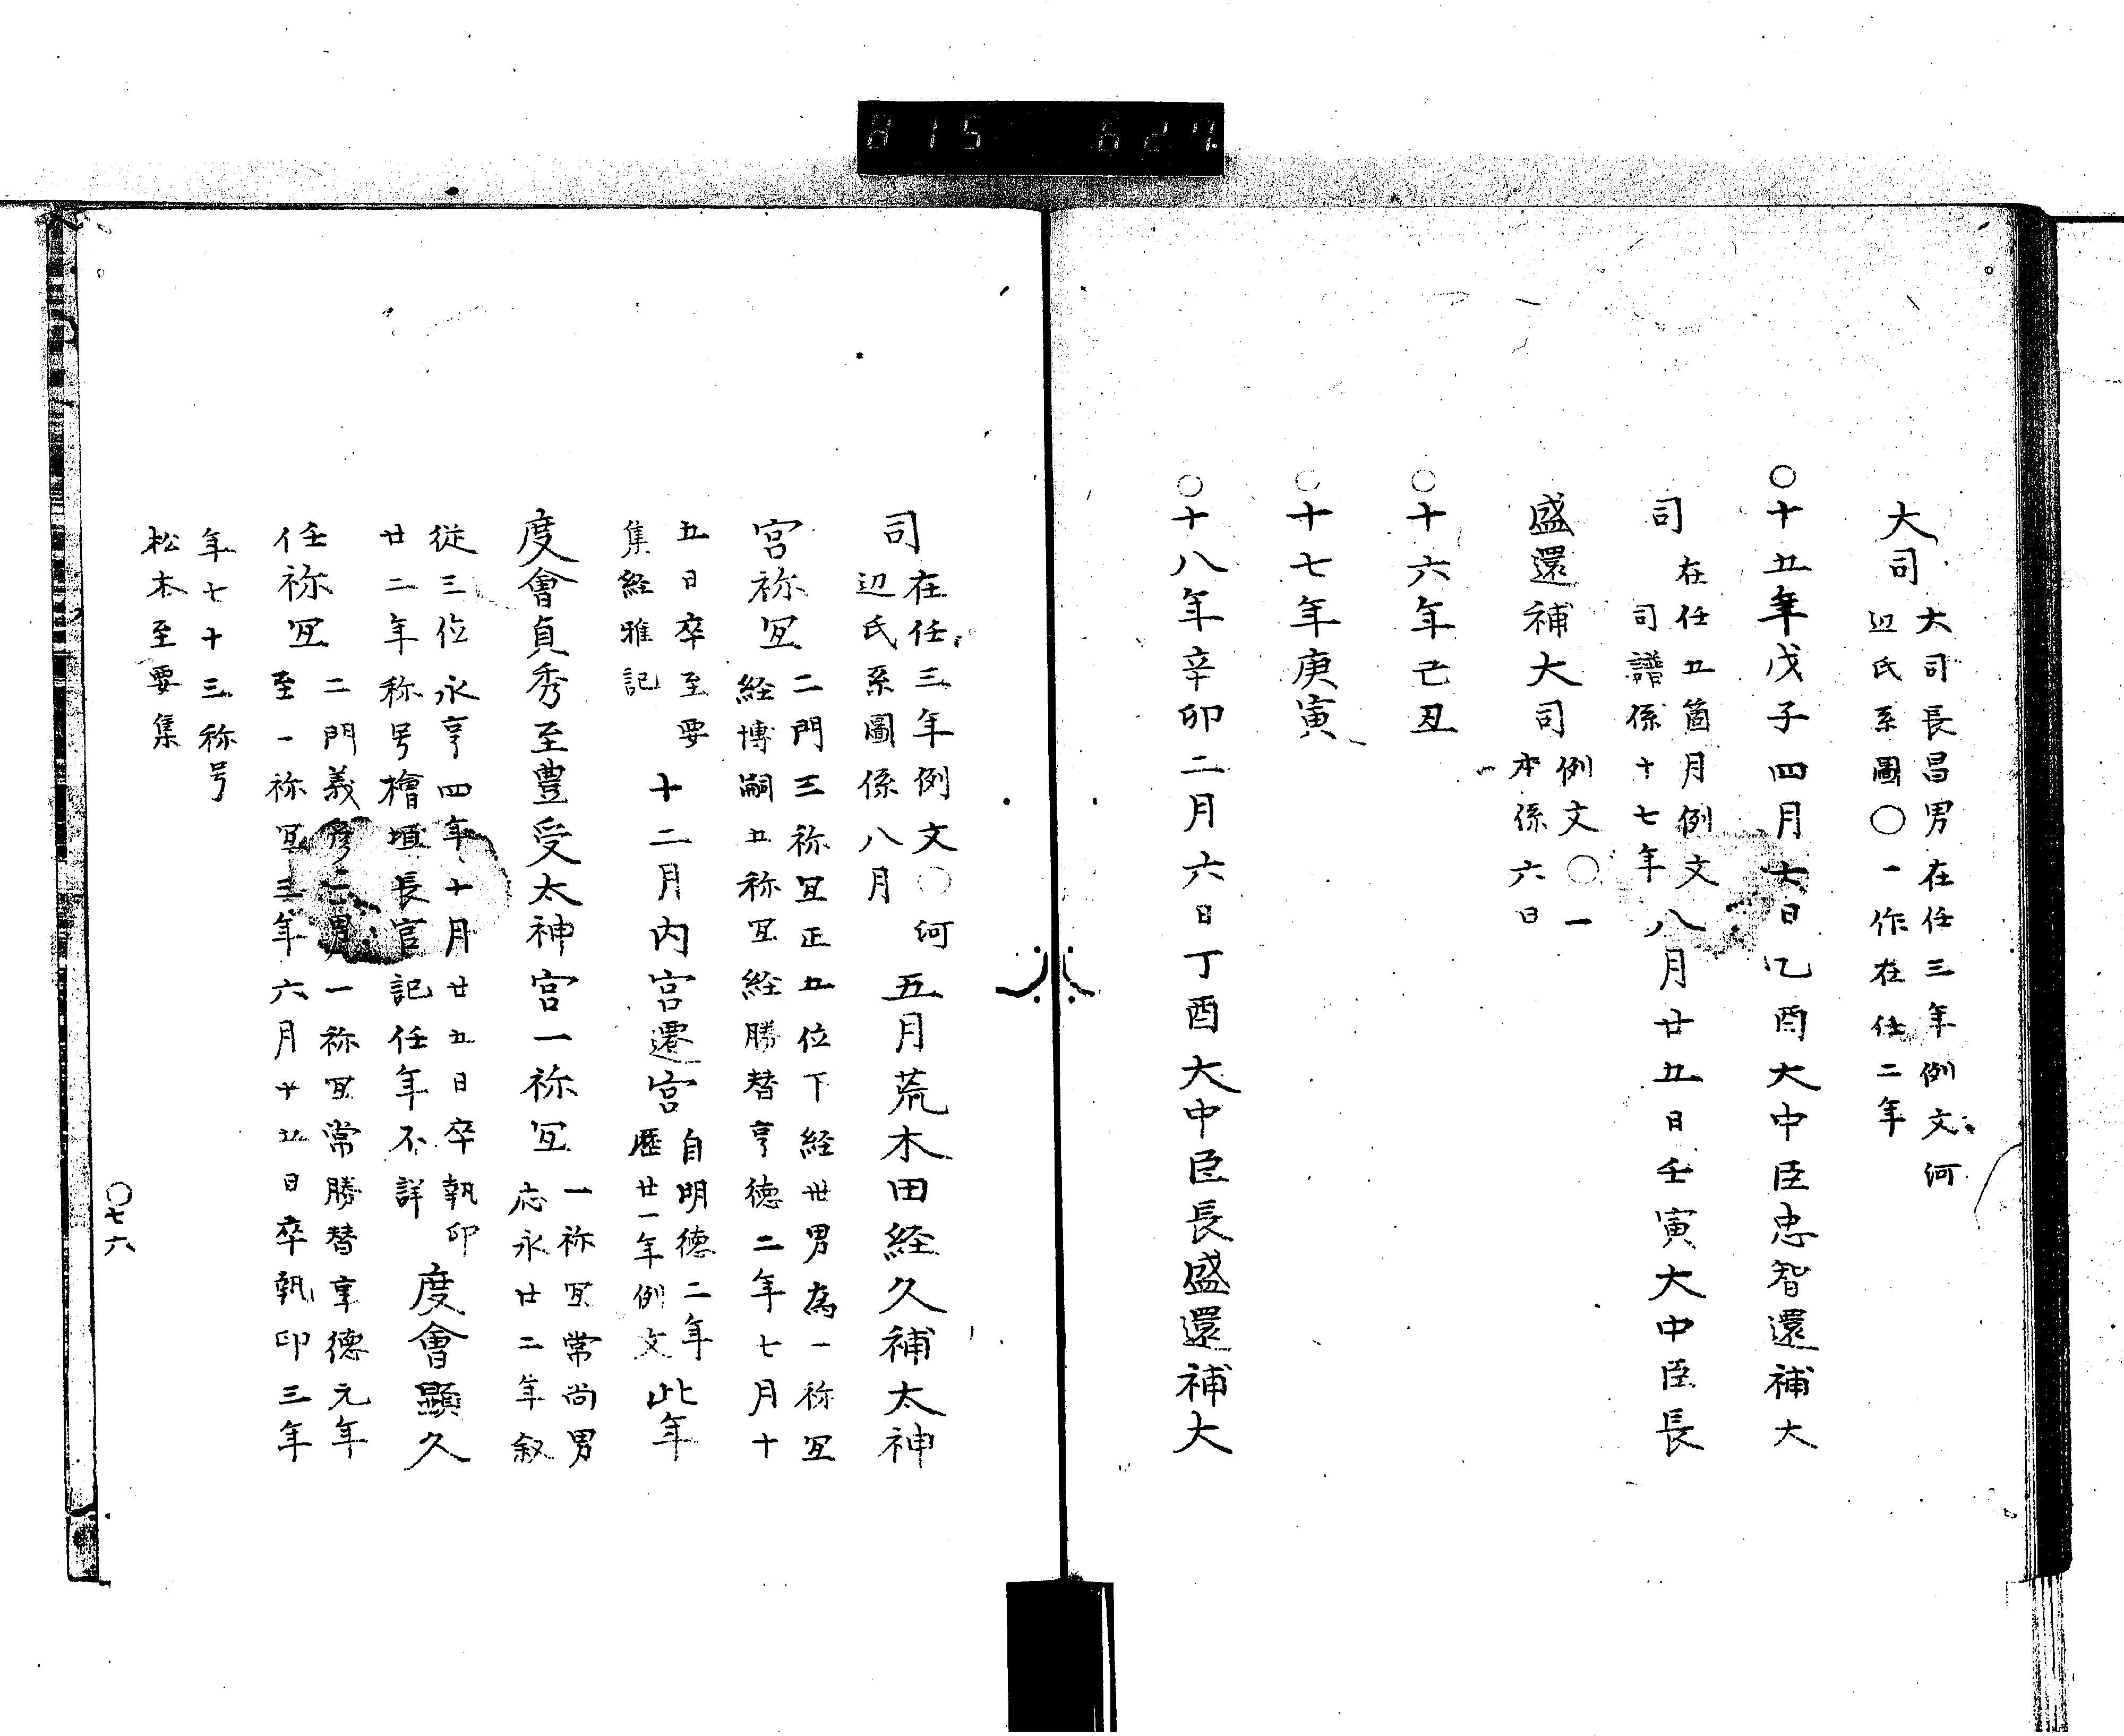 815 627
大司 大司長昌男在任三年例文河
辺氏系圖〇一作在任二年
〇十五年戊子四月七日乙酉大中臣忠智還補大
司 在任五箇月例文
司譜係十七年 八月廿五日壬寅大中臣長
盛還補大司 例文〇一
本係六日
〇十六年己丑
〇十七年庚寅
〇十八年辛卯二月六日丁酉大中臣長盛還補大
司 在任三年例文〇河
辺氏系圖係八月 五月荒木田経久補太神
宮祢冝 二門三祢冝正五位下経世男為一祢冝
経博嗣五祢冝経勝替亨徳二年七月十
五日卒至要
集経雅記 十二月内宮遷宮 自明徳二年
歴廿一年例文 此年
度會貞秀至豊受太神宮一祢冝 一祢冝常尚男
応永廿二年叙
従三位永亨四年十月廿五日卒執印
廿二年称号檜垣長官記任年不詳 度會顯久
任祢冝 二門義彦二男一祢冝常勝替享徳元年
至一祢冝三年六月十五日卒執印三年
年七十三称号
松木至要集
〇七六